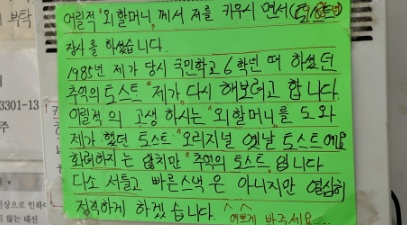 부탁
3301-13
주
않는 대신
어릴적 "외할머니"께서 저를 키우시면서
장사를 하셨습니다.
1985년 제가 당시 국민학교 6학년 때 하셨던
추억의 토스트 "제가" 다시 해보려고 합니다.
어릴적의 고생하시는 "외할머니를 도와
제가 했던 토스트 "오리지널 옛날 토스트에요
화려하지는 않치만 "추억의 토스트" 입니다
다소 서툴고 빠른스낵은 아니지만 열심히
정직하게 하겠습니다. ^^ 예쁘게 봐주세요...